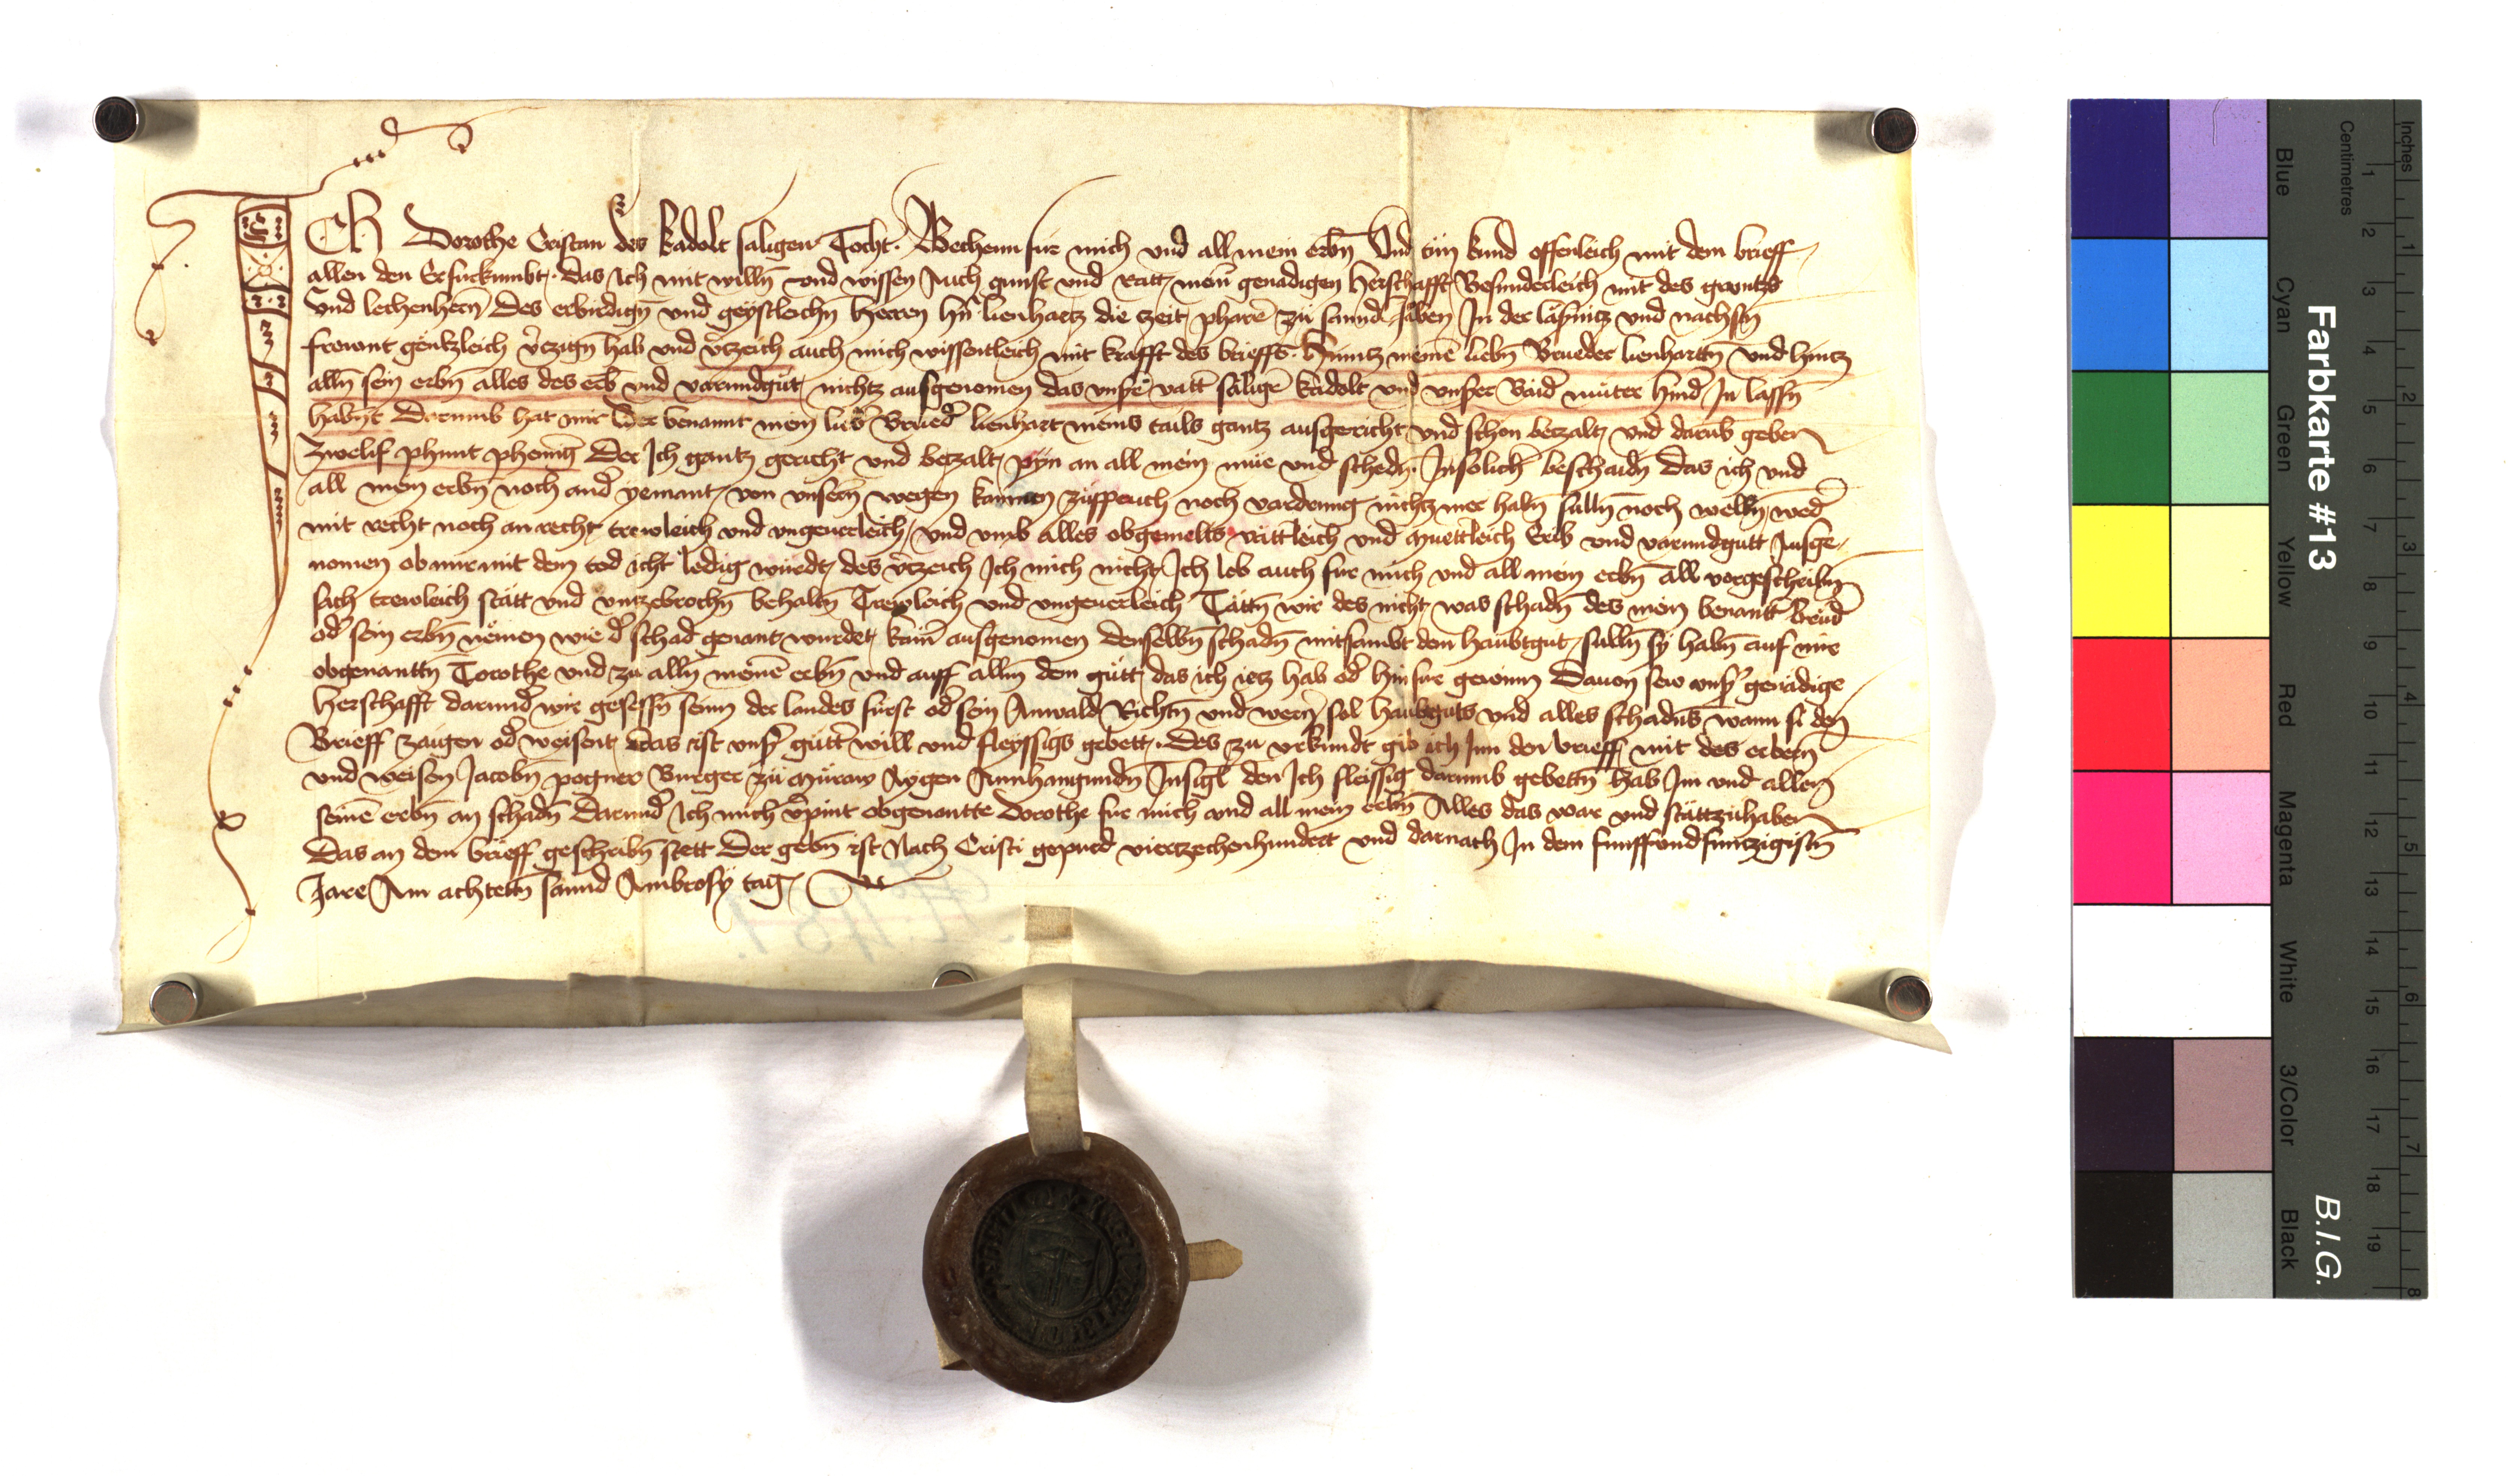 ICh Dorothe Cristan des kadolt saligen Tocht. Bechenn fur mich vnd all mein erbn̄ Vnd tün kund offenleich mit dem brieff
allen den Er furkumbt. das Ich mit willn̄ vnd wissen Auch gunst vnd Ratt, mein̄ genadigen Herschafft Besunderleich mit des gruntz
Vnd lechenhern̄ des erbirdign̄ vnd geystleichn̄ Herren hn̄ lienhartz die zeit pharē zü sannd Jaben In der lāsnitz vnd nachsn̄
frewnt gentzleich v̄czign̄ hab vnd v̄czeich auch mich wissentleich mit krafft des brieffs. Hinntz meinē liebn̄ Brueder lienharttn̄ vnd hintz
alln̄ sein erbn̄ alles des erb vnd varundgüt, nichtz ausgenomen das vnsꝛ̄ vatt̄ sāligē kadolt vnd vnser Baid̄ muter hind̄ In lassn̄
habn̄t Darumb hat mir der benannt mein lieb̄ Brued̄ lienhart meins tails gantz ausgericht vnd schon betzalt, vnd darūb geben
Zwelif phunt phenīg Der Ich gantz gericht vnd betzalt, pyn an all mein müe vnd schedn̄. In solich̄ beschaidn̄ das ich vnd
all mein erbn̄ noch and̄ yemant, von vnsern̄ wegen kainnen züspruch noch vardrung nichtz mer habn̄ sulln̄ noch welln̄, wed̄
mit recht noch an recht, trewleich vnd vngeuerleich, vnd vmb alles obgemelts vāttleich vnd muettleich Erib vnd varundgutt Ausge
nomen ob mir mit dem tod icht ledig wurdt, des v̄czeich Ich mich nicht Ich lob auch fur mich vnd all mein erbn̄ all vorgeschribn̄
sach trewleich stātt vnd vnzebrochn̄ behaltn̄ Trewleich vnd vngeuerleich Tāttn̄ wir des nicht, was schadn̄ des mein benantt̄ brūd̄
od̄ sein erbn̄ nemen wie d̄ schad genant wurdet, kain̄ ausgenomen denselbn̄ schadn̄ mitsambt dem haubtgut, sulln̄ sy habn̄ auf mir
obgenanttn̄ Torothe vnd zu alln̄ meinē erbn̄ vnd auff allm dem gütt, das ich ietz hab od̄ hinfur gewinn Dauon sew vnsꝛ̄ genādige
Herschafft darund̄ wir gesessn̄ seinn der landes fürst od̄ sein Anwald Richtn̄ vnd wern̄ sol haubtguts vnd alles schadn̄s wann si den
Brieff zaigen od̄ weisent, Das ist vnsꝛ̄ gutt̄ will vnd fleyssigs gebett,. des zu vrkundt gib ich Im den brieff mit des erbern̄
vnd weisen Jacobn̄ pogner Burger zü Müraw Aygen Annhangundn̄ Insigl̄ den Ich fleissig darumb gebettn̄ hab Im vnd allen
seinē erbn̄ an schadn̄ Darund̄ Ich mich v̄pint obgenantte Dorothe fur mich vnd all mein erbn̄ Alles das war vnd stāttzuhaben
Das an dem brieff geschribn̄ stett Der gebn̄ ist Nach Cristi gepurd̄ viertzechenhundert vnd darnach In dem funffvndfunczigistn̄
Jare Am achtettn̄ sannd Ambrosÿ tag,
Farbkarte #13
B.I.G.
Inches 1 2 3 4 5 6 7 8
Centimetres 1 2 3 4 5 6 7 8 9 10 11 12 13 14 15 16 17 18 19
Blue Cyan Green Yellow Red Magenta White 3/Color Black